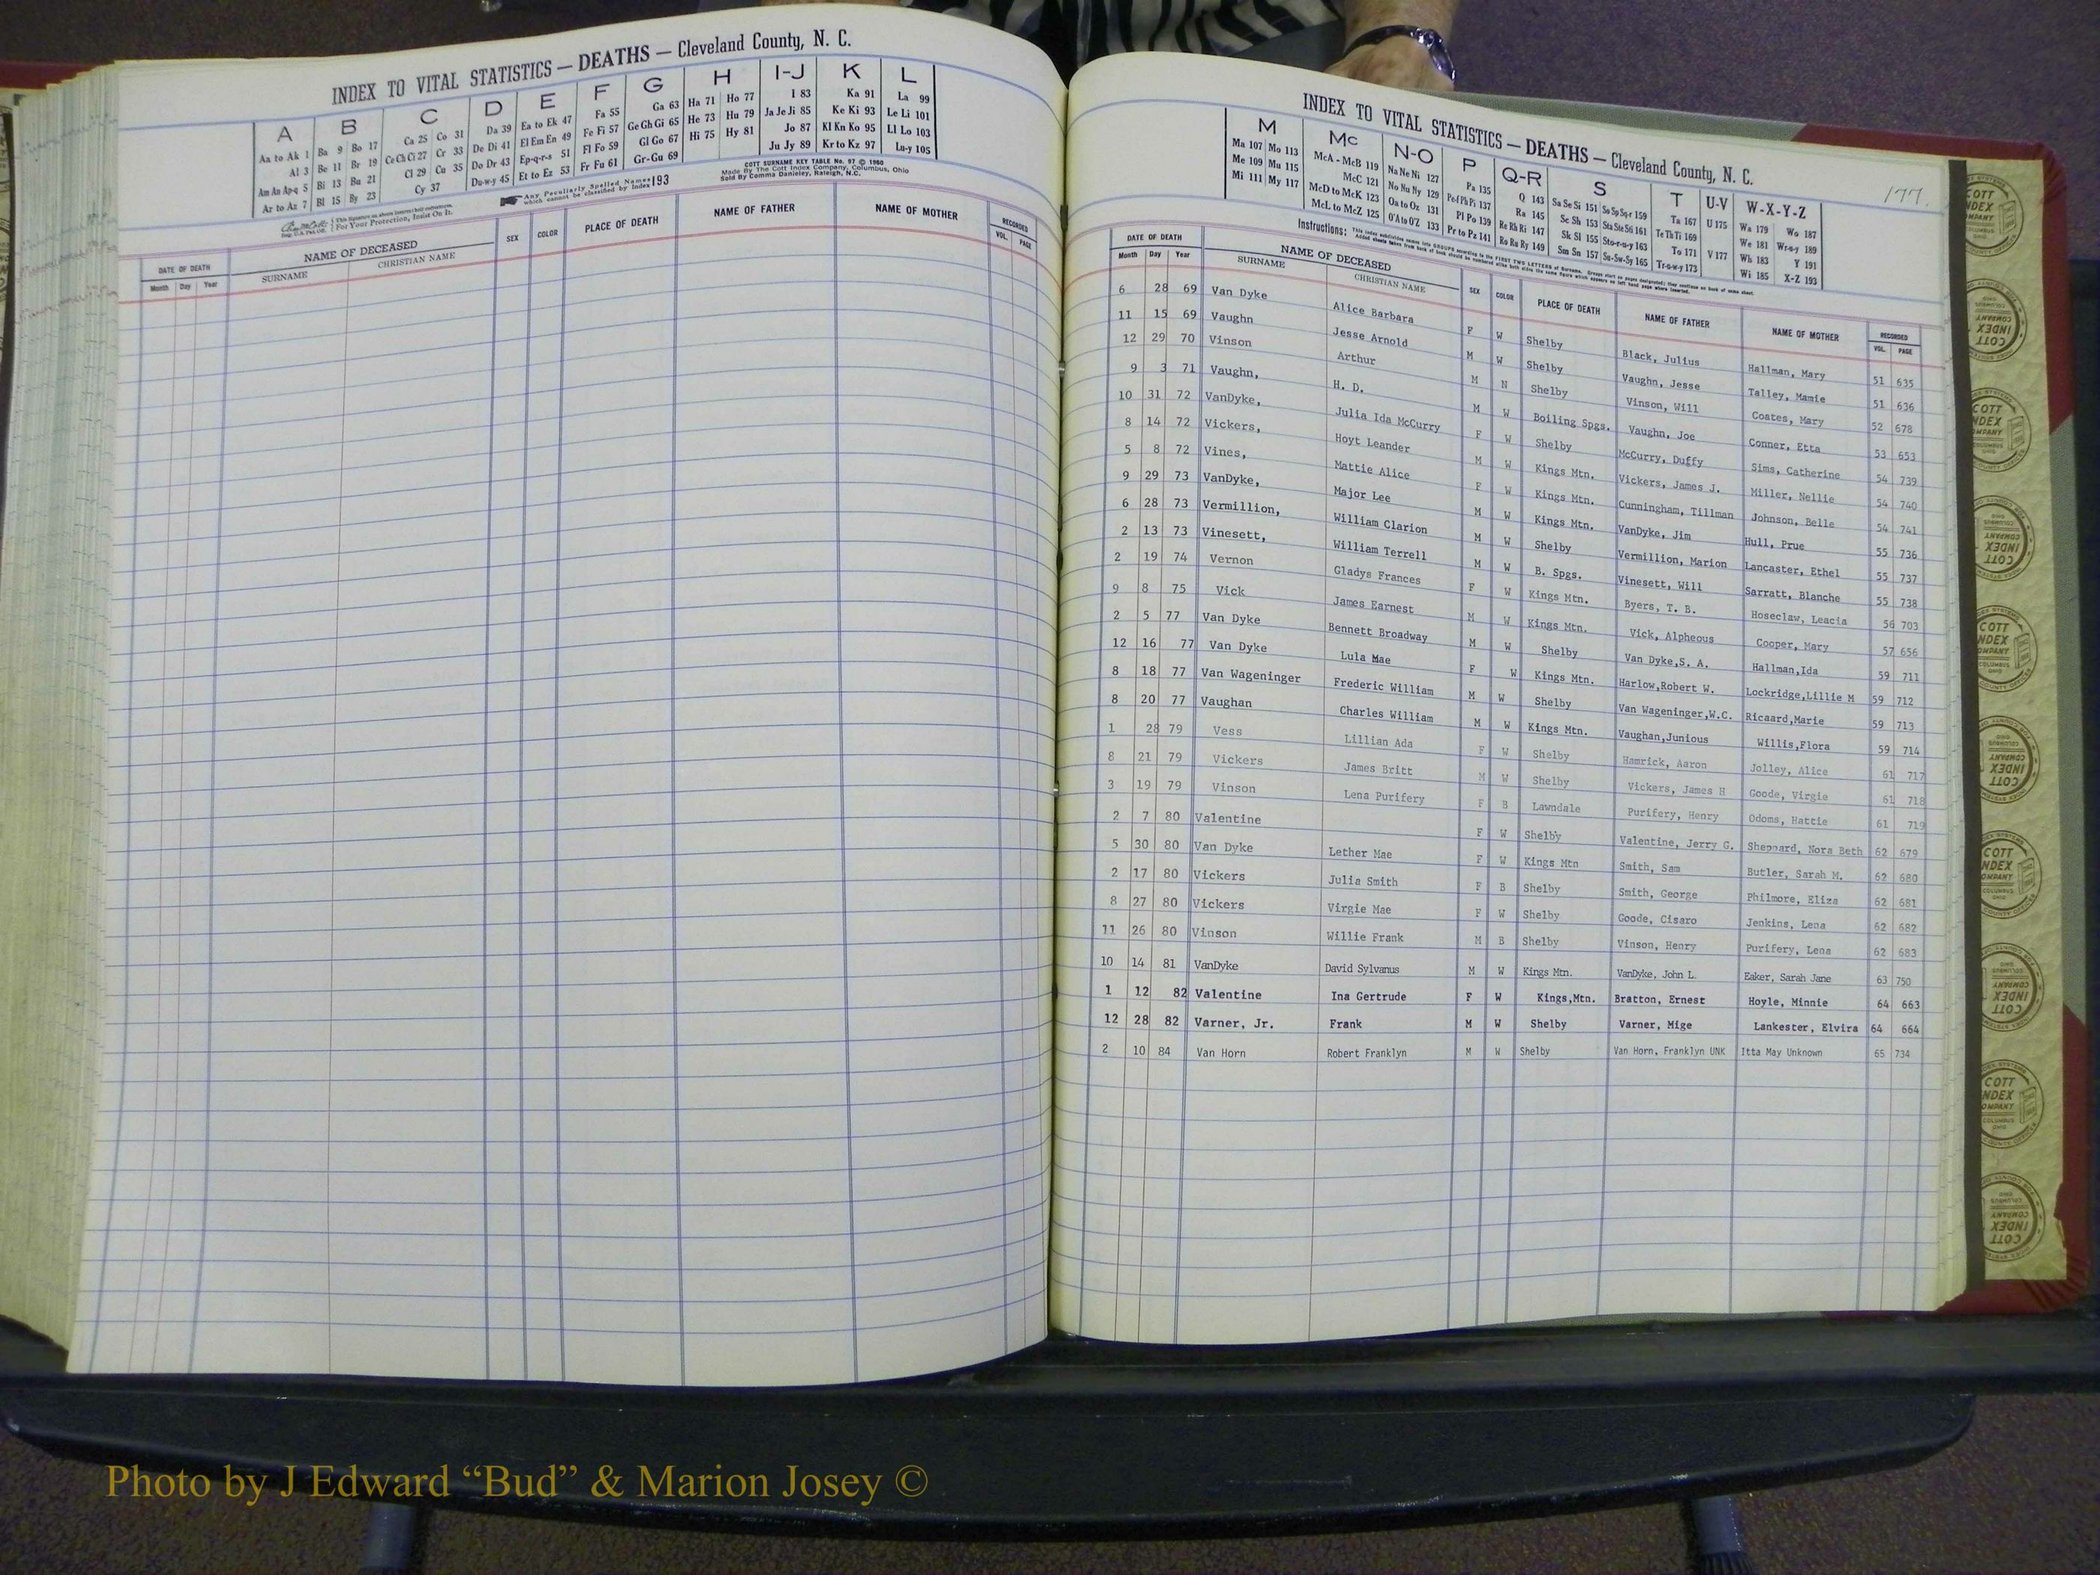 INDEX TO VITAL STATISTICS — DEATHS — Cleveland County, N. C.
A B C D E F G H I-J K L
Aa to Ak 1 Ba 9 Bo 17 Ca 25 Co 31 Da 39 Ea to Ek 47 Fa 55 Ga 63 Ha 71 Ho 77 I 83 Ka 91 La 99
Al 3 Be 11 Br 19 Ce Ch Ci 27 Cr 33 De Di 41 El Em En 49 Fe Fi 57 Ge Gh Gi 65 He 73 Hu 79 Ja Je Ji 85 Ke Ki 93 Le Li 101
Am An Ap-q 5 Bi 13 Bu 21 Cl 29 Cu 35 Do Dr 43 Ep-q-r-s 51 Fl Fo 59 Gl Go 67 Hi 75 Hy 81 Jo 87 Kl Kn Ko 95 Ll Lo 103
Ar to Az 7 Bl 15 By 23 Cy 37 Du-w-y 45 Et to Ez 53 Fr Fu 61 Gr-Gu 69 Ju Jy 89 Kr to Kz 97 Lu-y 105
For Your Protection, Insist On It.
Any Peculiarly Spelled Names which cannot be classified by Index 193
COTT SURNAME KEY TABLE No. 97 © 1960
Made By The Cott Index Company, Columbus, Ohio
Sold By Comma Danieley, Raleigh, N.C.
DATE OF DEATH NAME OF DECEASED SEX COLOR PLACE OF DEATH NAME OF FATHER NAME OF MOTHER RECORDED
Month Day Year SURNAME CHRISTIAN NAME VOL. PAGE
INDEX TO VITAL STATISTICS — DEATHS — Cleveland County, N. C.
177.
M Mc N-O P Q-R S T U-V W-X-Y-Z
Ma 107 Mo 113 McA - McB 119 Na Ne Ni 127 Pa 135 Q 143 Sa Se Si 151 So Sp Sq-r 159 Ta 167 U 175 Wa 179 Wo 187
Me 109 Mu 115 McC 121 No Nu Ny 129 Pe-f Ph Pi 137 Ra 145 Sc Sh 153 Sta Ste Sti 161 Te Th Ti 169 We 181 Wr-u-y 189
Mi 111 My 117 McD to McK 123 Oa to Oz 131 Pl Po 139 Re Rh Ri 147 Sk Sl 155 Sto-r-u-y 163 To 171 Wh 183 Y 191
McL to McZ 125 O'A to O'Z 133 Pr to Pz 141 Ro Ru Ry 149 Sm Sn 157 Su-Sw-Sy 165 Tr-u-w-y 173 V 177 Wi 185 X-Z 193
DATE OF DEATH NAME OF DECEASED SEX COLOR PLACE OF DEATH NAME OF FATHER NAME OF MOTHER RECORDED
Month Day Year SURNAME CHRISTIAN NAME VOL. PAGE
6 28 69 Van Dyke Alice Barbara F W Shelby Black, Julius Hallman, Mary 51 635
11 15 69 Vaughn Jesse Arnold M W Shelby Vaughn, Jesse Talley, Mamie 51 636
12 29 70 Vinson Arthur M N Shelby Vinson, Will Coates, Mary 52 678
9 3 71 Vaughn, H. D. M W Boiling Spgs. Vaughn, Joe Conner, Etta 53 653
10 31 72 VanDyke, Julia Ida McCurry F W Shelby McCurry, Duffy Sims, Catherine 54 739
8 14 72 Vickers, Hoyt Leander M W Kings Mtn. Vickers, James J. Miller, Nellie 54 740
5 8 72 Vines, Mattie Alice F W Kings Mtn. Cunningham, Tillman Johnson, Belle 54 741
9 29 73 VanDyke, Major Lee M W Kings Mtn. VanDyke, Jim Hull, Prue 55 736
6 28 73 Vermillion, William Clarion M W Shelby Vermillion, Marion Lancaster, Ethel 55 737
2 13 73 Vinesett, William Terrell M W B. Spgs. Vinesett, Will Sarratt, Blanche 55 738
2 19 74 Vernon Gladys Frances F W Kings Mtn. Byers, T. B. Hoseclaw, Leacia 56 703
9 8 75 Vick James Earnest M W Kings Mtn. Vick, Alpheous Cooper, Mary 57 656
2 5 77 Van Dyke Bennett Broadway M W Shelby Van Dyke,S. A. Hallman,Ida 59 711
12 16 77 Van Dyke Lula Mae F W Kings Mtn. Harlow,Robert W. Lockridge,Lillie M 59 712
8 18 77 Van Wageninger Frederic William M W Shelby Van Wageninger,W.C. Ricaard,Marie 59 713
8 20 77 Vaughan Charles William M W Kings Mtn. Vaughan,Junious Willis,Flora 59 714
1 28 79 Vess Lillian Ada F W Shelby Hamrick, Aaron Jolley, Alice 61 717
8 21 79 Vickers James Britt M W Shelby Vickers, James H Goode, Virgie 61 718
3 19 79 Vinson Lena Purifery F B Lawndale Purifery, Henry Odoms, Hattie 61 719
2 7 80 Valentine F W Shelby Valentine, Jerry G. Sheppard, Nora Beth 62 679
5 30 80 Van Dyke Lether Mae F W Kings Mtn Smith, Sam Butler, Sarah M. 62 680
2 17 80 Vickers Julia Smith F B Shelby Smith, George Philmore, Eliza 62 681
8 27 80 Vickers Virgie Mae F W Shelby Goode, Cisaro Jenkins, Lena 62 682
11 26 80 Vinson Willie Frank M B Shelby Vinson, Henry Purifery, Lena 62 683
10 14 81 VanDyke David Sylvanus M W Kings Mtn. VanDyke, John L. Eaker, Sarah Jane 63 750
1 12 82 Valentine Ina Gertrude F W Kings,Mtn. Bratton, Ernest Hoyle, Minnie 64 663
12 28 82 Varner, Jr. Frank M W Shelby Varner, Mige Lankester, Elvira 64 664
2 10 84 Van Horn Robert Franklyn M W Shelby Van Horn, Franklyn UNK Itta May Unknown 65 734
Photo by J Edward “Bud” & Marion Josey ©